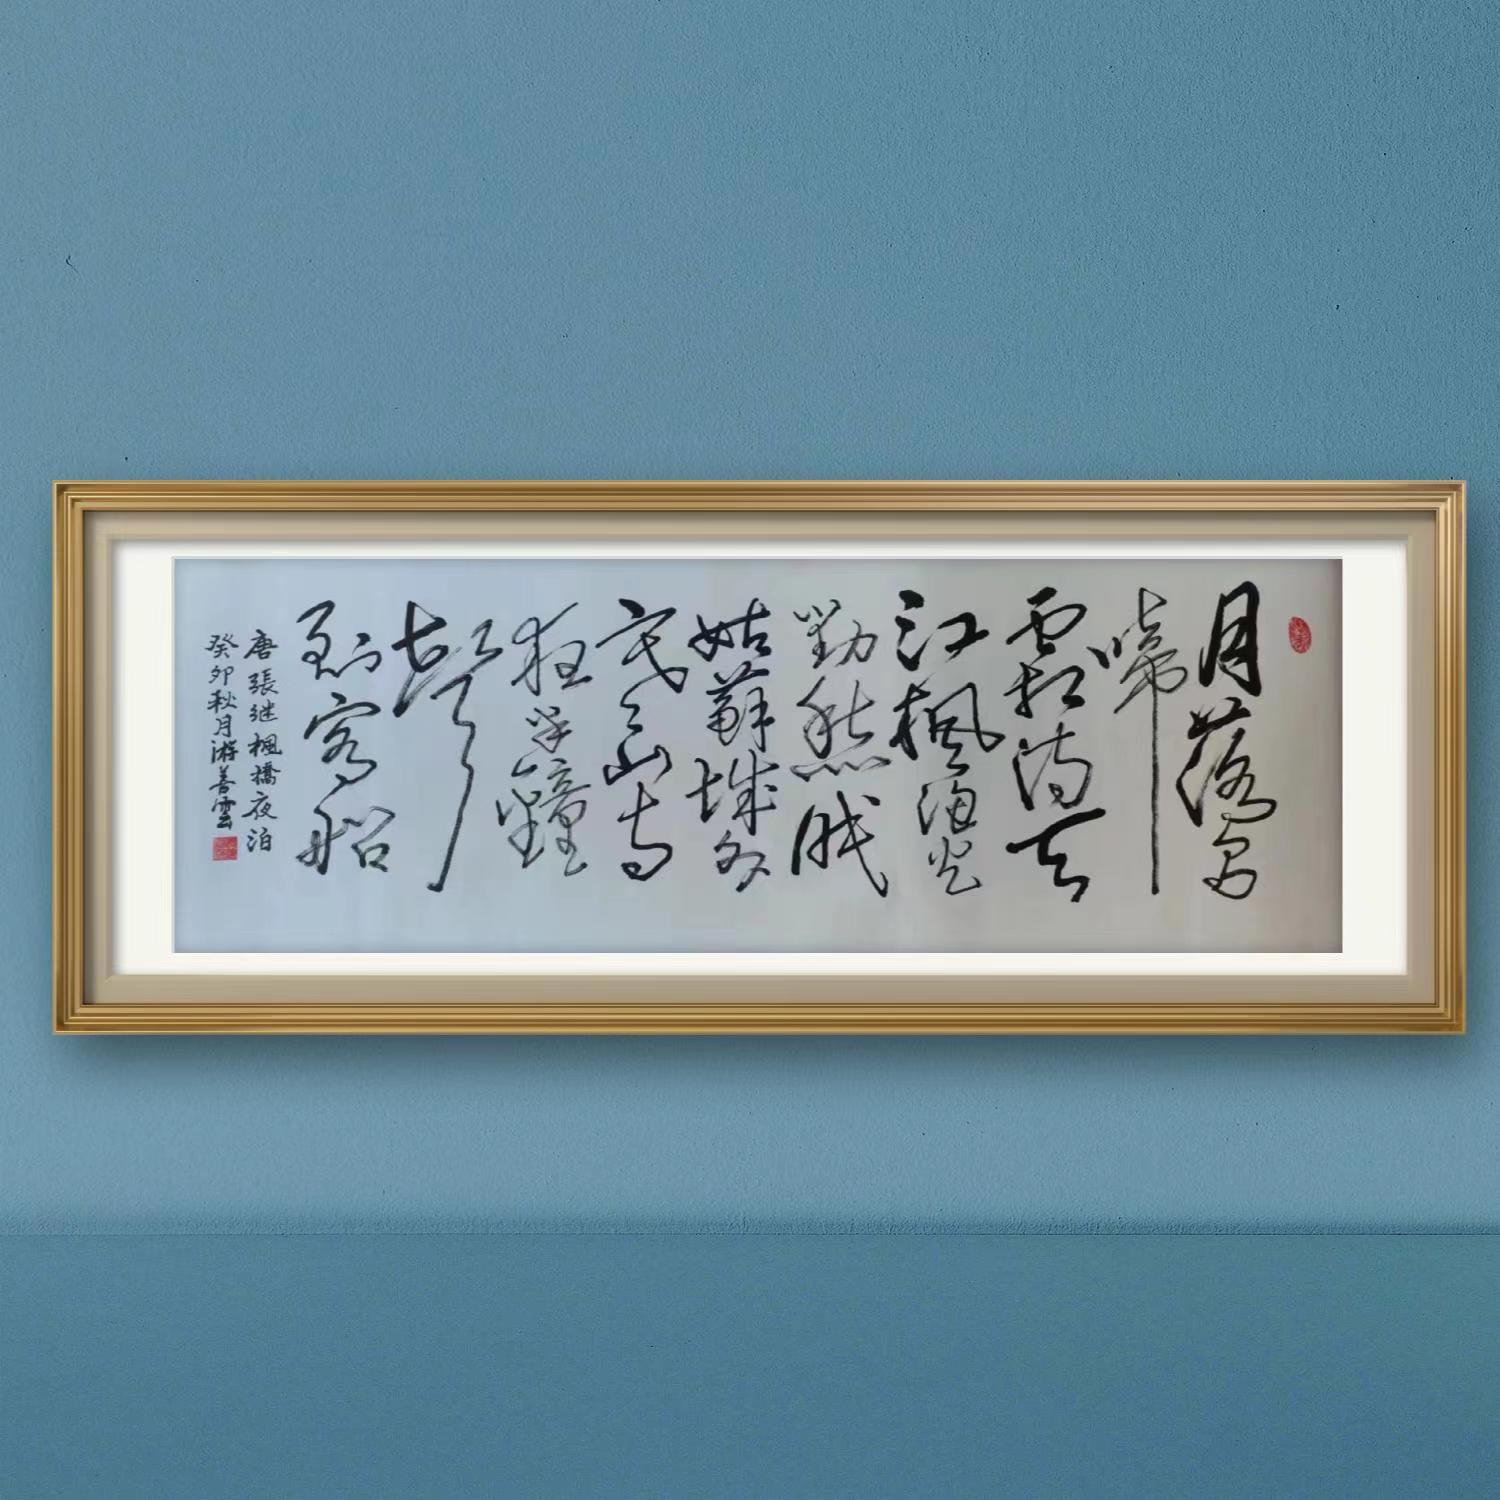 月落烏
啼
霜满天
江楓漁火
對愁眠
姑蘇城外
寒山寺
夜半鐘
聲
到客船
唐張继楓橋夜泊
癸卯秋月游善雲